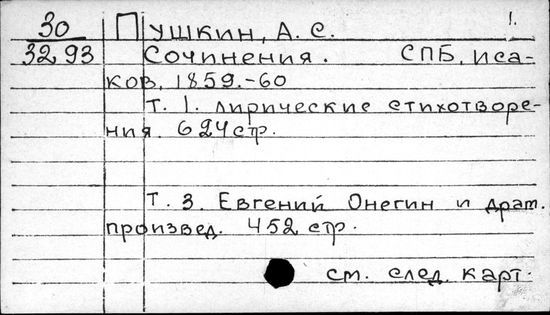 30 Пушкин, А. С. 1.
3293 Сочинения. СПБ, иса-
ков, 1859.-60
Т. 1. лирические стихотворе-
ния. 624 стр.
Т. 3. Евгений Онегин и драт.
произвед. 452 стр.
см. след. карт.